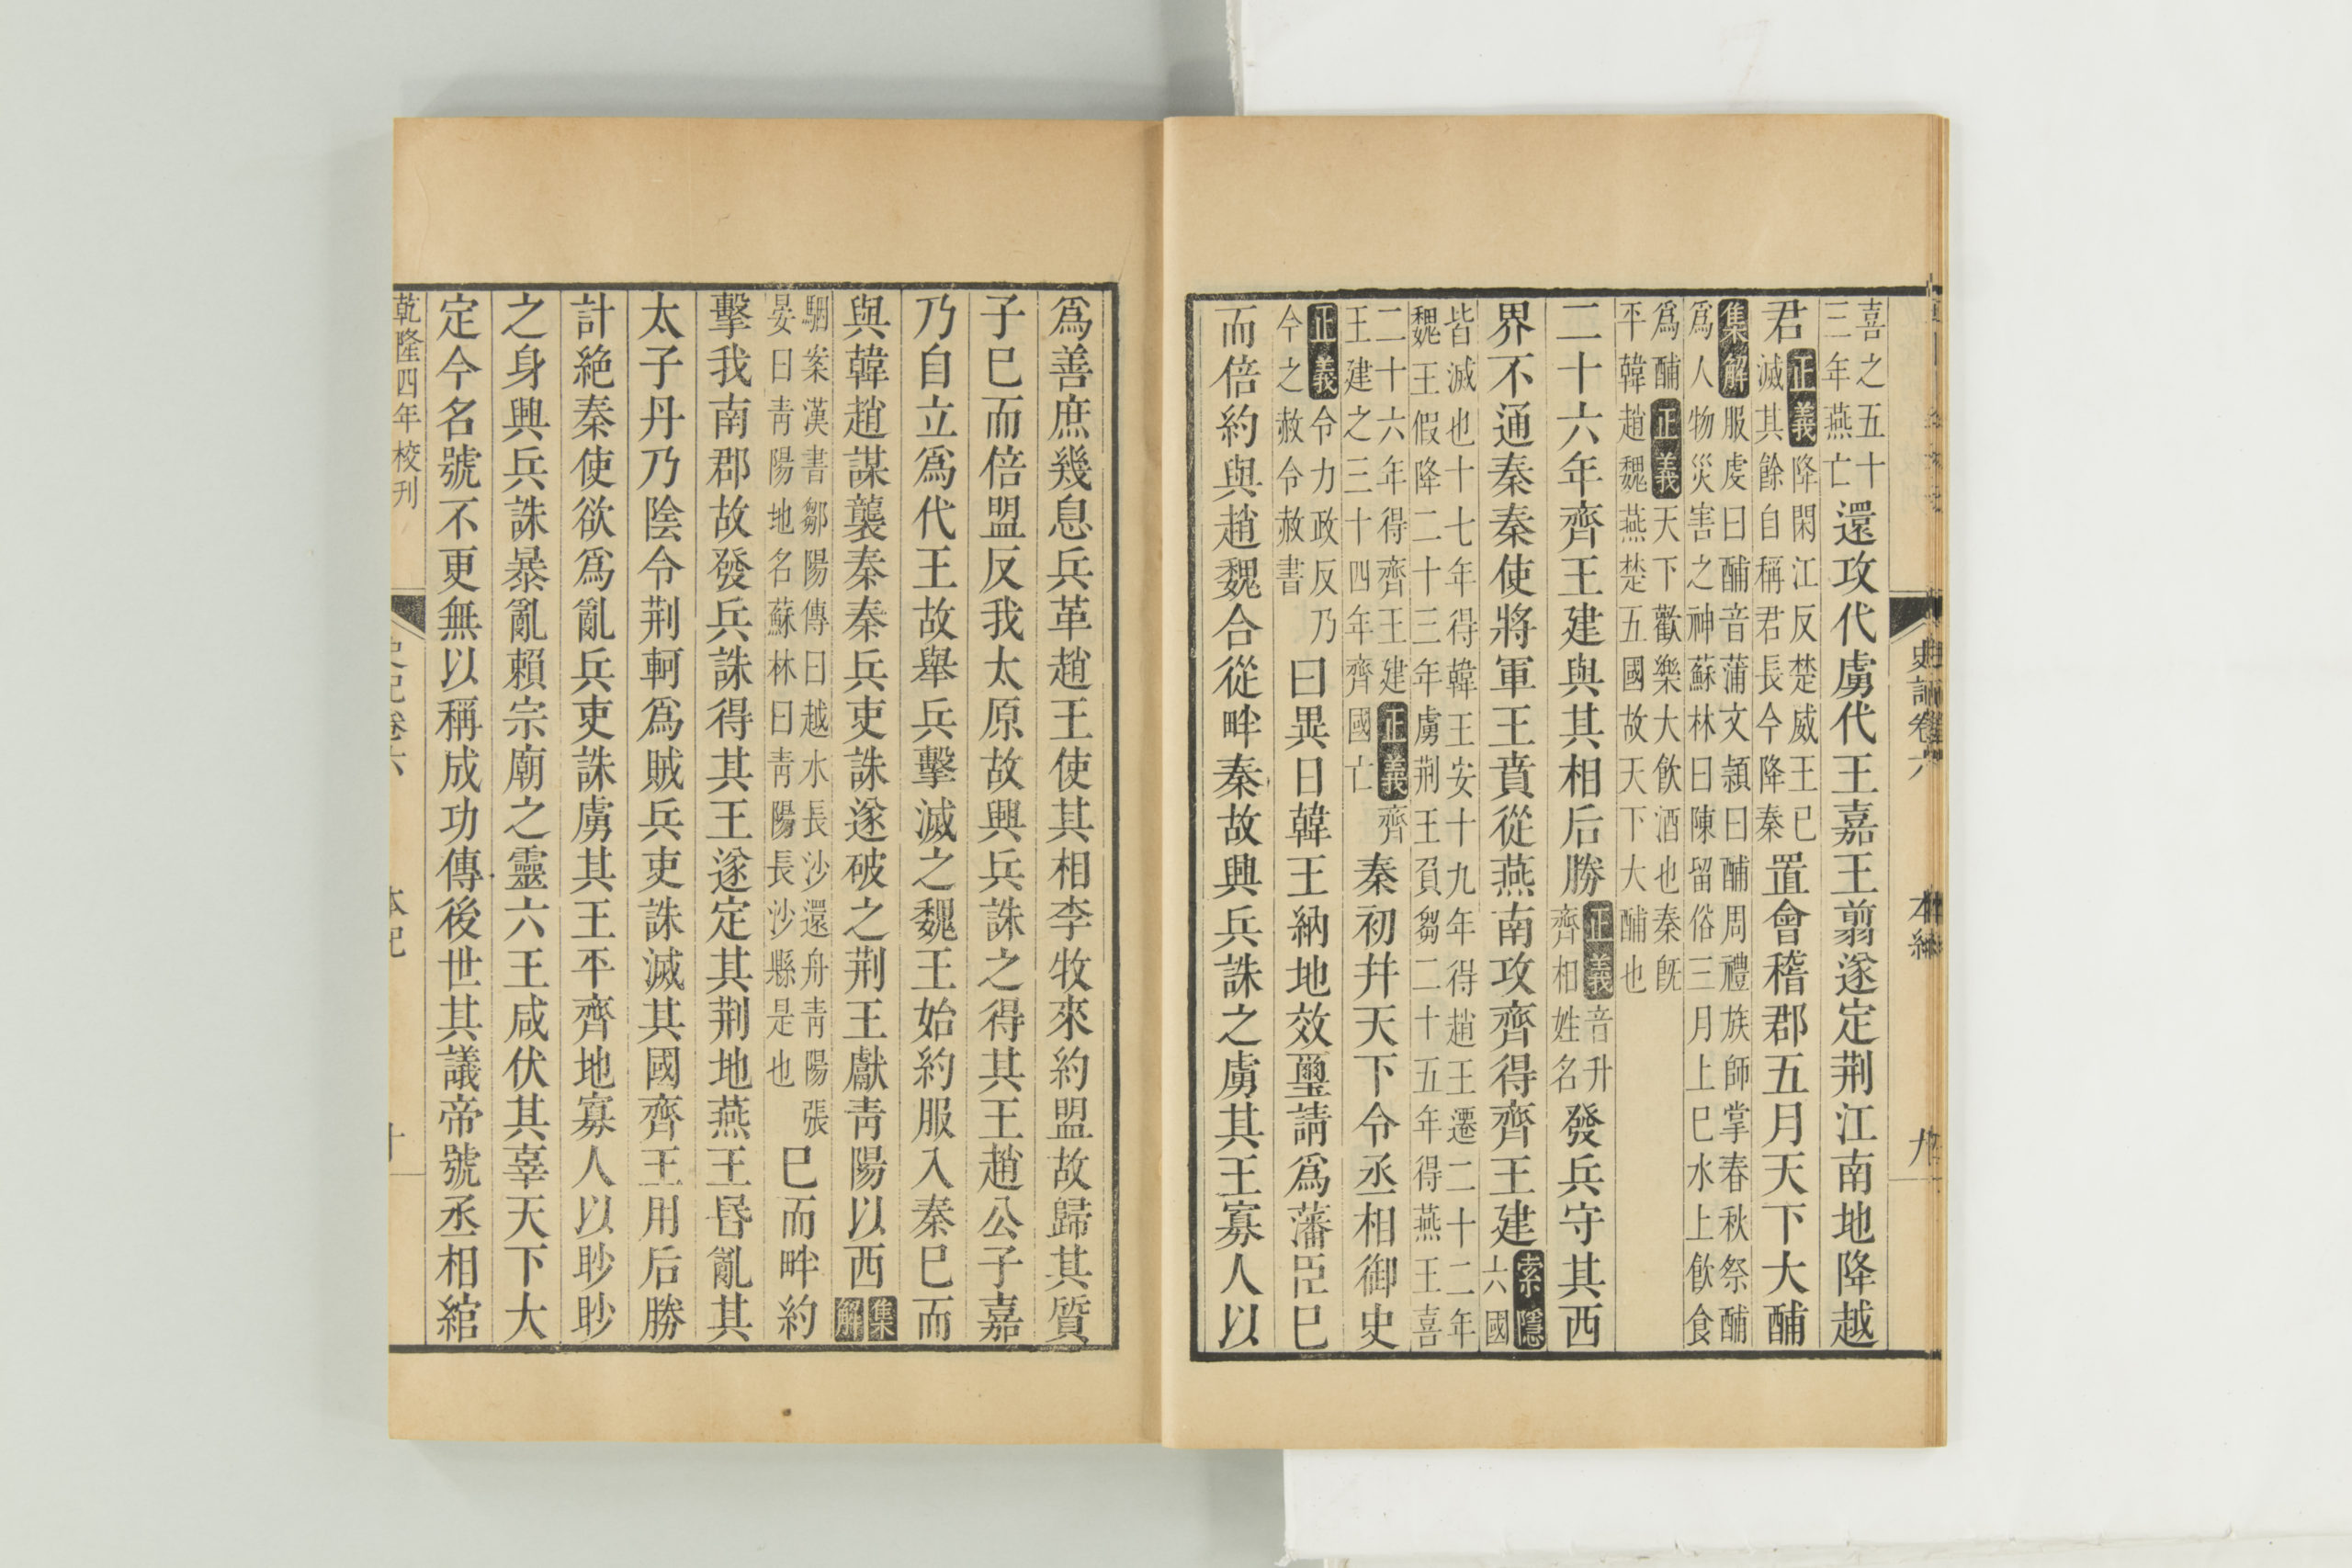 史記卷六
本紀
九
喜之五十
三年燕亡
還攻代虜代王嘉王翦遂定荆江南地降越
君
正義降閩江反楚威王已
滅其餘自稱君長今降秦
置會稽郡五月天下大酺
集解服虔曰酺音蒲文穎曰酺周禮族師掌春秋祭酺
爲人物災害之神蘇林曰陳留俗三月上巳水上飮食
爲酺正義天下歡樂大飮酒也秦旣
平韓趙魏燕楚五國故天下大酺也
二十六年齊王建與其相后勝
正義音升
齊相姓名
發兵守其西
界不通秦秦使將軍王賁從燕南攻齊得齊王建
索隱
六國
皆滅也十七年得韓王安十九年得趙王遷二十二年
魏王假降二十三年虜荆王負芻二十五年得燕王喜
二十六年得齊王建正義齊
王建之三十四年齊國亡
秦初幷天下令丞相御史
正義令力政反乃
今之赦令赦書
曰異日韓王納地效璽請爲藩臣已
而倍約與趙魏合從畔秦故興兵誅之虜其王寡人以
爲善庶幾息兵革趙王使其相李牧來約盟故歸其質
子已而倍盟反我太原故興兵誅之得其王趙公子嘉
乃自立爲代王故舉兵擊滅之魏王始約服入秦已而
與韓趙謀襲秦秦兵吏誅遂破之荆王獻靑陽以西
集解
駰案漢書鄒陽傳曰越水長沙還舟靑陽張
晏曰靑陽地名蘇林曰靑陽長沙縣是也
已而畔約
擊我南郡故發兵誅得其王遂定其荆地燕王昬亂其
太子丹乃陰令荆軻爲賊兵吏誅滅其國齊王用后勝
計絶秦使欲爲亂兵吏誅虜其王平齊地寡人以眇眇
之身興兵誅暴亂賴宗廟之靈六王咸伏其辜天下大
定今名號不更無以稱成功傳後世其議帝號丞相綰
乾隆四年校刊
史記卷六
本紀
十